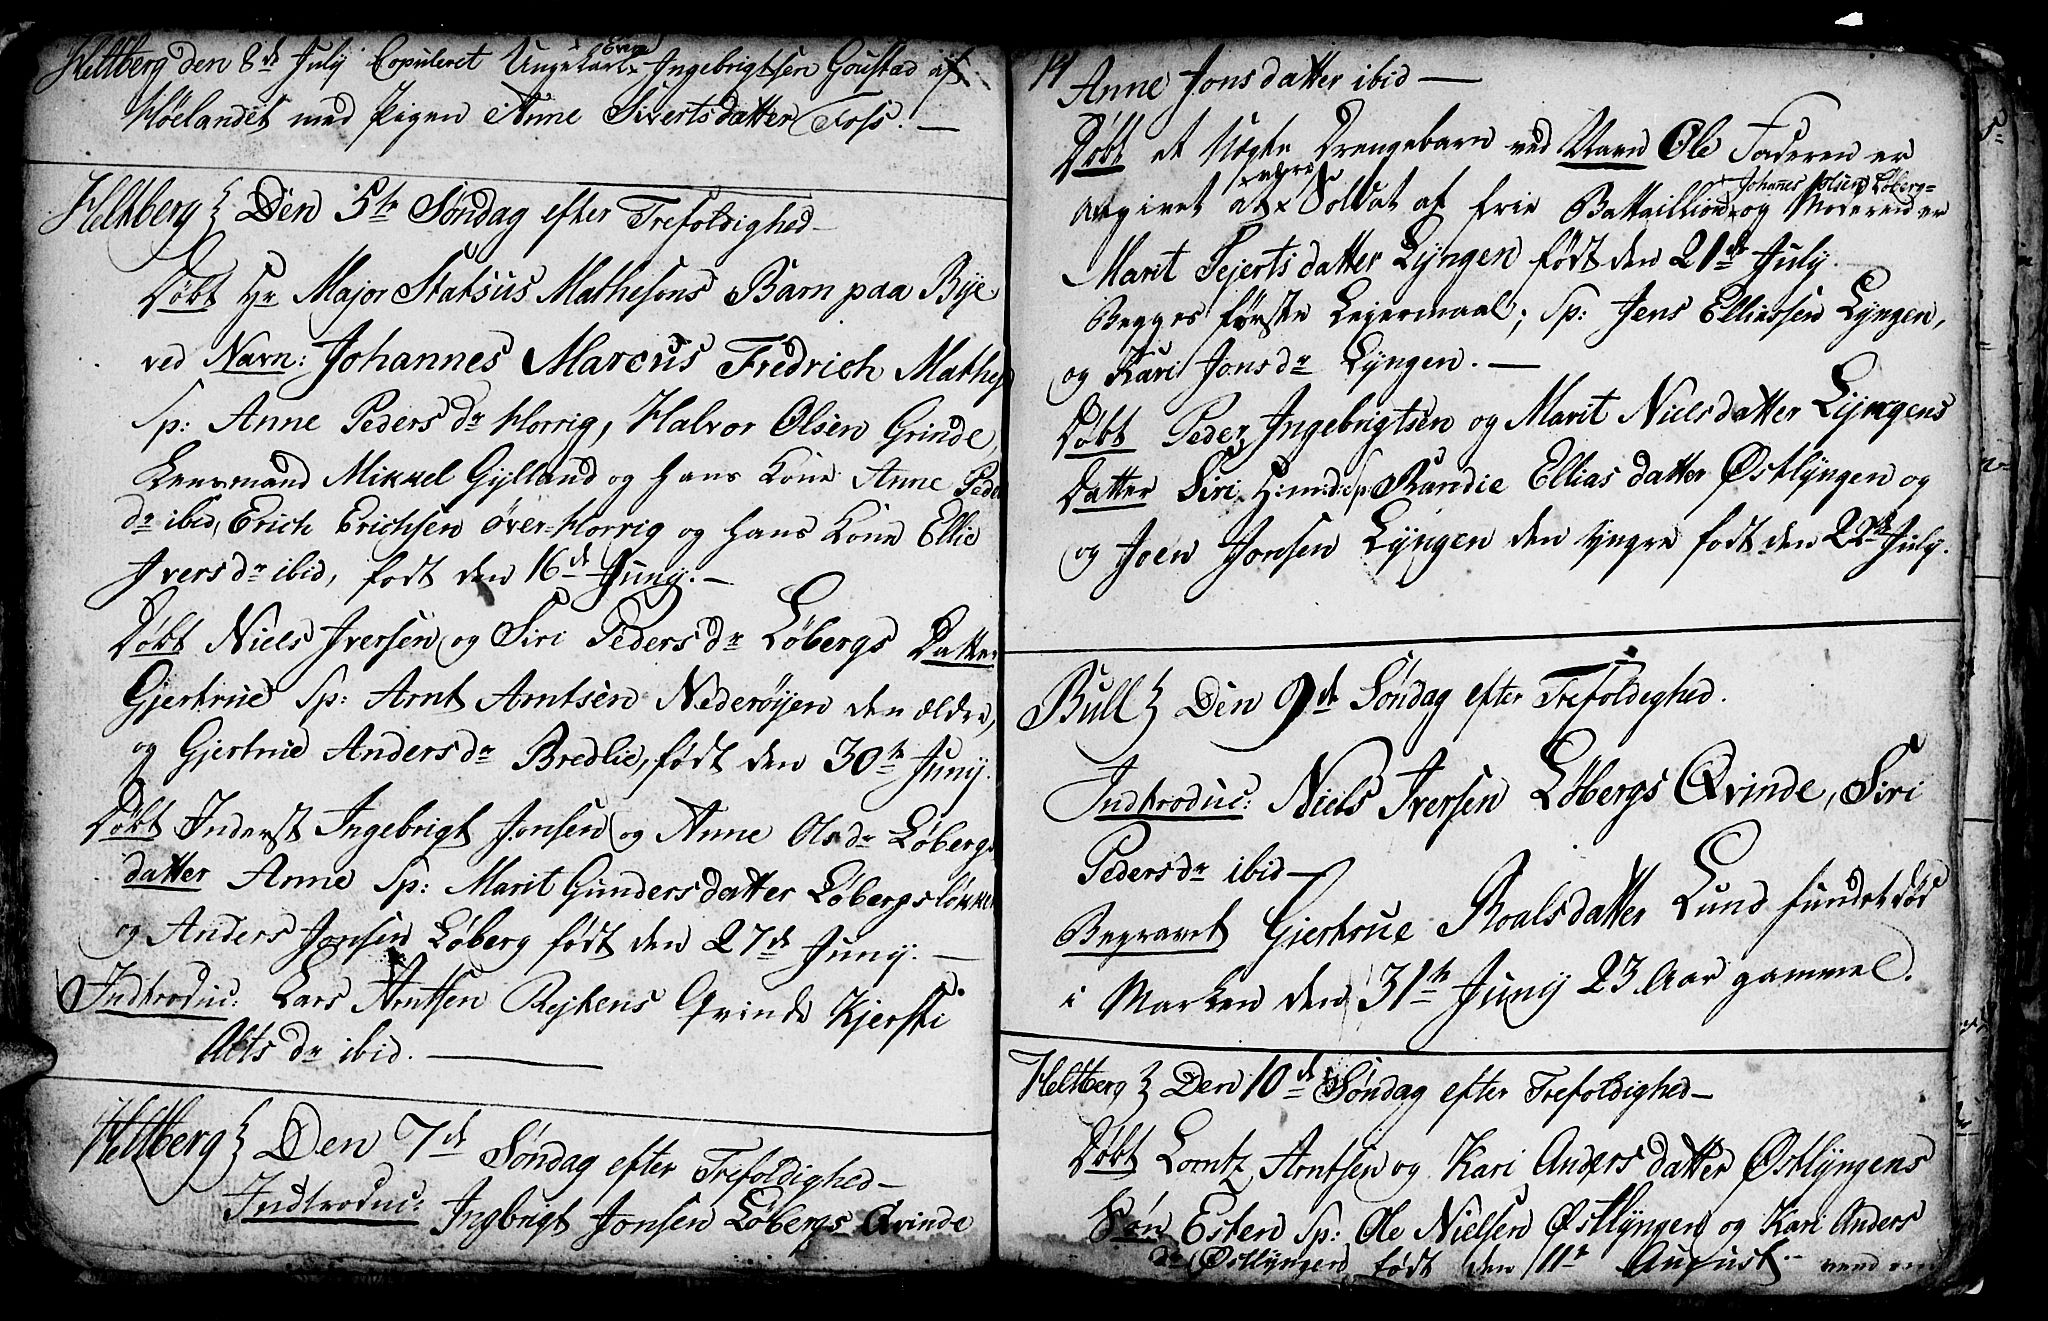 Heltberg den 8de July Copuleret Ungekarl Even Ingebrigtsen Goustad af
Høelandet med Pigen Anne Sivertsdatter Foss. —
Heltberg Den 5te Søndag efter Trefoldighed —
Døbt Hr Major Statsus Mathesons Barn paa Bye
ved Navn: Johannes Marcus Fredrich Mathes
Sp: Anne Peders dr Horrig, Halvor Olsen Grinde
Lensmand Mikkel Gylland og hans Kone Anne Peder
dr ibid, Erich Erichsen Øver-Horrig og hans Kone Ellie
Ivers dr ibid, født den 16de Juny. —
Døbt Niels Iversen og Siri Peders dr Løbergs Datter
Gjertrue Sp: Arnt Arntsen Nederøyen den ældre,
og Gjertrue Anders dr Bredlie, født den 30te Juny.
Døbt Inderst Ingebrigt Jonsen og Anne Ols dr Løbergs
datter Anne Sp: Marit Gunders datter Løbergsløkken
og Anders Jonsen Løberg født den 27de Juny. —
Indtroduc: Lars Arntsen Rejtens Qvinde Kjersti
dr ibid. —
Heltberg Den 7de Søndag efter Trefoldighed —
Indtroduc: Ingbrigt Jonsen Løbergs Qvinde
14
Anne Jonsdatter ibid —
Døbt et Uægte Drengebarn ved Navn Ole Faderen er
angivet at være Soldat af frie Battaillion Johanes Olsen Løberg og Moderen er
Marit Sejerts datter Lyngen født den 21de July.
Begges første Lejermaal; Sp: Jens Elliassen Lyngen,
og Kari Jons dr Lyngen. —
Døbt Peder Ingebrigtsen og Marit Nielsdatter Lyngens
Datter Siri H:m:d: Sp: Randie Ellias datter Østlyngen og
og Joen Jonsen Lyngen den yngre født den 22de July.
Bull Den 9de Søndag efter Trefoldighed.
Indtroduc: Niels Iversen Løbergs Qvinde, Siri
Peders dr ibid —
Begravet Gjertrue Roalsdatter Lund fundet død
i Marken den 31te Juny 23 Aar gammel.
Heltberg Den 10de Søndag efter Trefoldighed —
Døbt Lorntz Arntsen og Kari Anders datter Østlyngens
Søn Esten Sp: Ole Nielsen Østlyngen og Kari Anders
dr Østlyngen født den 11te August